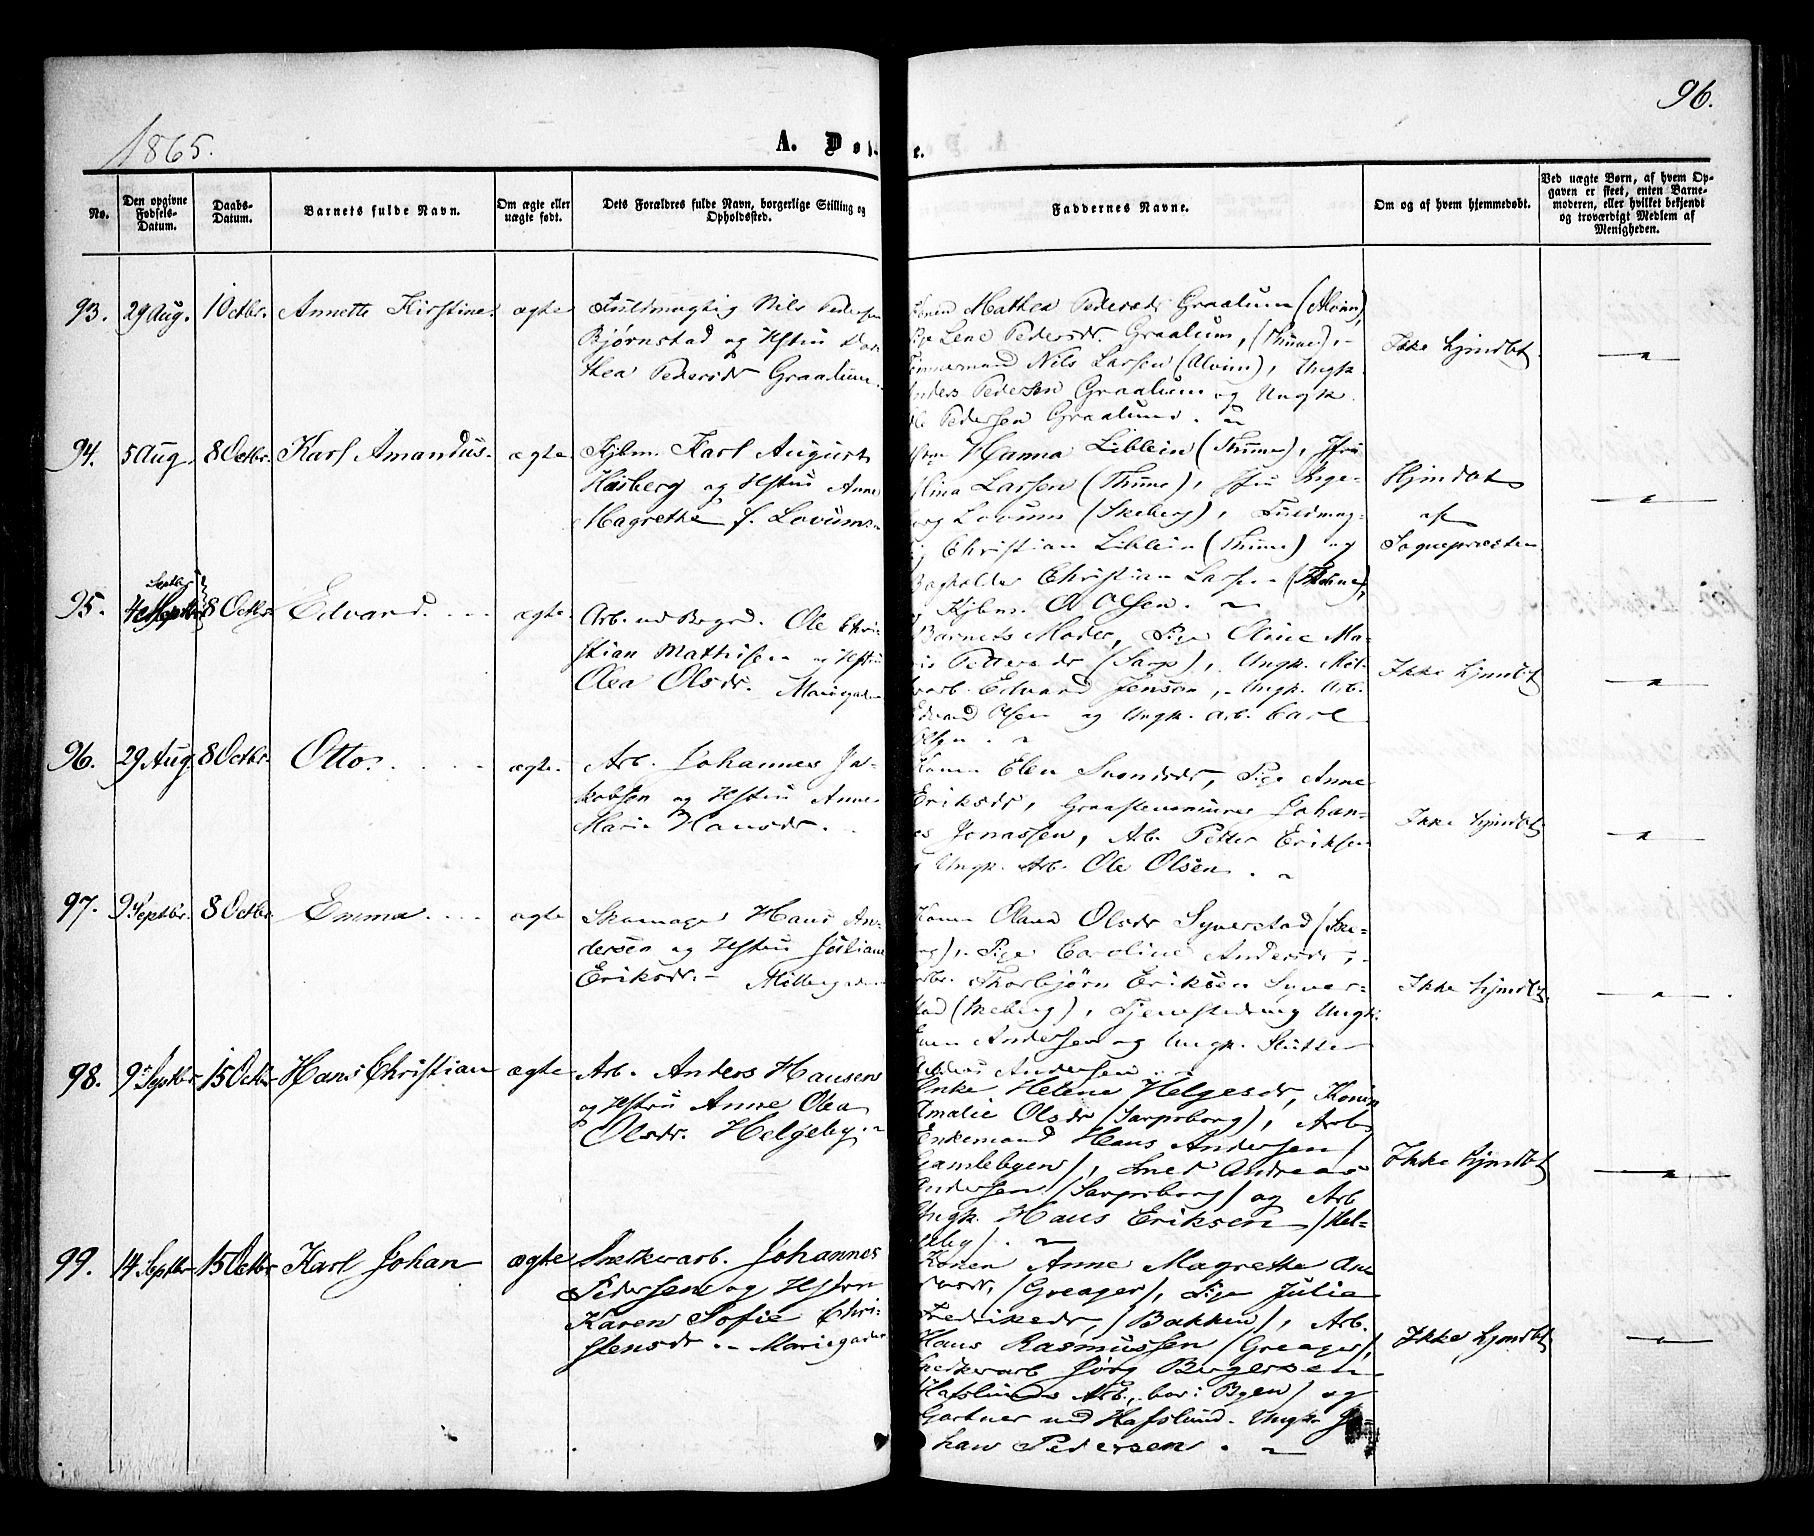 96.
1865.
A. Døbte.
No.
Den opgivne Fødsels-Datum.
Daabs-Datum.
Barnets fulde Navn.
Om ægte eller uægte født.
Dets Forældres fulde Navn, borgerlige Stilling og Opholdssted.
Faddernes Navne.
Om og af hvem hjemmedøbt.
Ved uægte Børn, af hvem Opgaven er skeet, enten Barnemoderen, eller hvilket bekjendt og troværdigt Medlem af Menigheden.
93. 29 Aug. 1 Octbr. Annette Kirstine ægte
Fuldmægtig Nils Pedersen
Bjørnstad og Hstru Dor-
thea Pedersdr Graalum.
Konen Mathea Pedersdr Graalum (Alvim),
Pige Lene Pedersdr. Graalum, (Thune),
Tømmermand Nils Larsen (Alvim), Ungk.
Anders Pedersen Graalum og Ungk.
Ole Pedersen Graalum.
Ikke hjmdbt
94. 5 Aug. 8 Octbr. Karl Amandus ægte
Kjbm. Karl August
Høiberg og Hstru Anne
Magrethe f. Lovum
Hanna Liblein (Thune), Jfru
Elina Larsen (Thune), Jfru Inge-
borg Lovum (Skeberg), Fuldmæg-
tig Christian Liblein (Thune) og
Bogholder Christian Larsen (Thune),
og Kjbm. O Olsen.
Hjmdøbt
af
Sognepræsten
95. 4 Septbr 8 Octbr. Edvard ægte
Arb. ved Brgd. Ole Chri-
stian Mathisen og Hstru
Olea Olsdr. Mariegaden
Barnets Moder, Pige Oline Ma-
rie Pettersdr (Sarp), Ungk. Møl-
learb. Edvard Jensen, Ungk. Arb.
Edvard Olsen og Ungk. Arb. Carl
Olsen.
Ikke hjmdbt
96. 29 Aug. 8 Octbr. Otto ægte
Arb. Johannes Ja-
kobsen og Hstru Anne
Marie Hansdr.
Konen Elen Svendsdr, Pige Anne
Eriksdr, Graastensmurer Johan-
nes Jonassen, Arb. Petter Eriksen
og Ungk. Arb. Ole Olsen.
Ikke hjmdbt
97. 9 Septbr. 8 Octbr Emma ægte
Skomager Hans An-
dersen og Hstru Juliane
Eriksdr. Møllergaden
Konen Olava Olsdr Syverstad (Ske-
berg), Pige Caroline Andersdr,
Arb. Thorbjørn Eriksen Syver-
stad (Skeberg), Tjenestedreng Ungk.
Even Andersen og Ungk.
Andersen.
Ikke hjmdbt
98. 9 Septbr 15 Octbr Hans Christian ægte
Arb. Anders Hansen
og Hstru Anne Olea
Olsdr. Helgeby.
Enke Helene Helgesdr, Konen
Amalie Olsdr (Sarpsborg), Arb.
Enkemand Hans Andersen
Gamlebyen), Smed Andreas
Andersen (Sarpsborg) og Arb
Ungk. Hans Eriksen (Hel-
geby).
Ikke hjmdbt
99. 14 Septbr 15 Octbr Karl Johan ægte
Snekkerarb. Johannes
Pedersen og Hstru
Karen Sofie Chri-
stensdr. Mariegaden
Konen Anne Magrethe An-
dersdr, (Greager), Pige Julie
Fredriksdr, (Bakken), Arb.
Hans Rasmussen (Greager),
Snekkerarb Jørg Birgersen
Hafslunds Arb. bor i Byen) og
Gartner ved Hafslund. Ungk. Jo-
han Pedersen.
Ikke hjmdbt